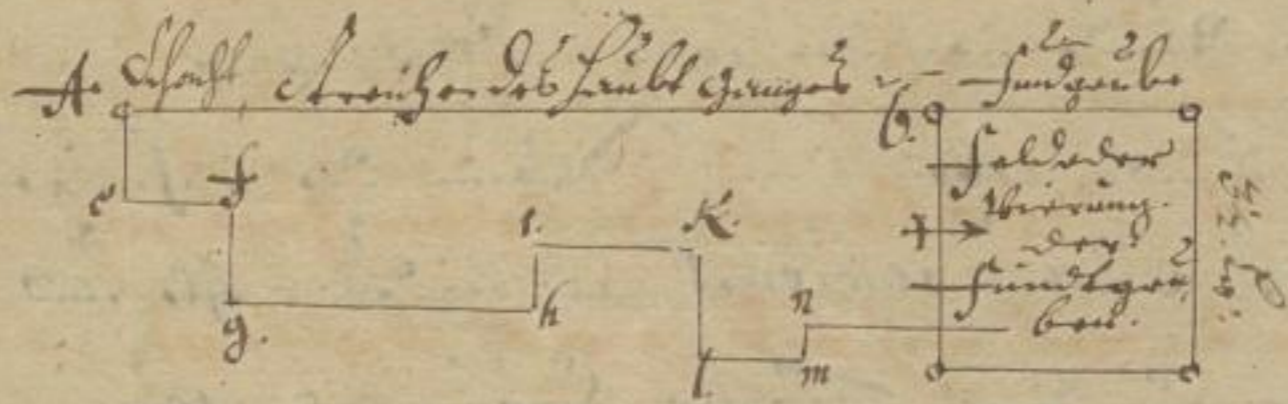 A. Schacht, Streichen des Haubt Ganges Fundgrube
B.
Feld oder
Vierung
der
Fundtgru
ben.
e f
i. K.
g. h n
l m